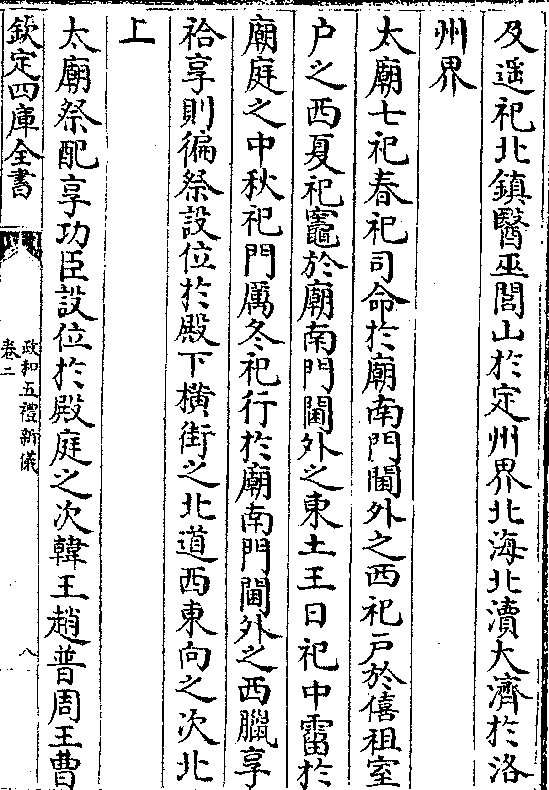 及遥祀北鎮醫巫閭山於定州界北海北瀆大濟於洛
州界
太廟七祀春祀司命於廟南門閫外之西祀戸於僖祖室
户之西夏祀竈於廟南門閫外之東土王日祀中霤於
廟庭之中秋祀門厲冬祀行於廟南門閫外之西臘享
祫享則徧祭設位於殿下横街之北道西東向之次北
上
太廟祭配享功臣設位於殿庭之次韓王趙普周王曹
欽定四庫全書
政和五禮新儀
卷二
八